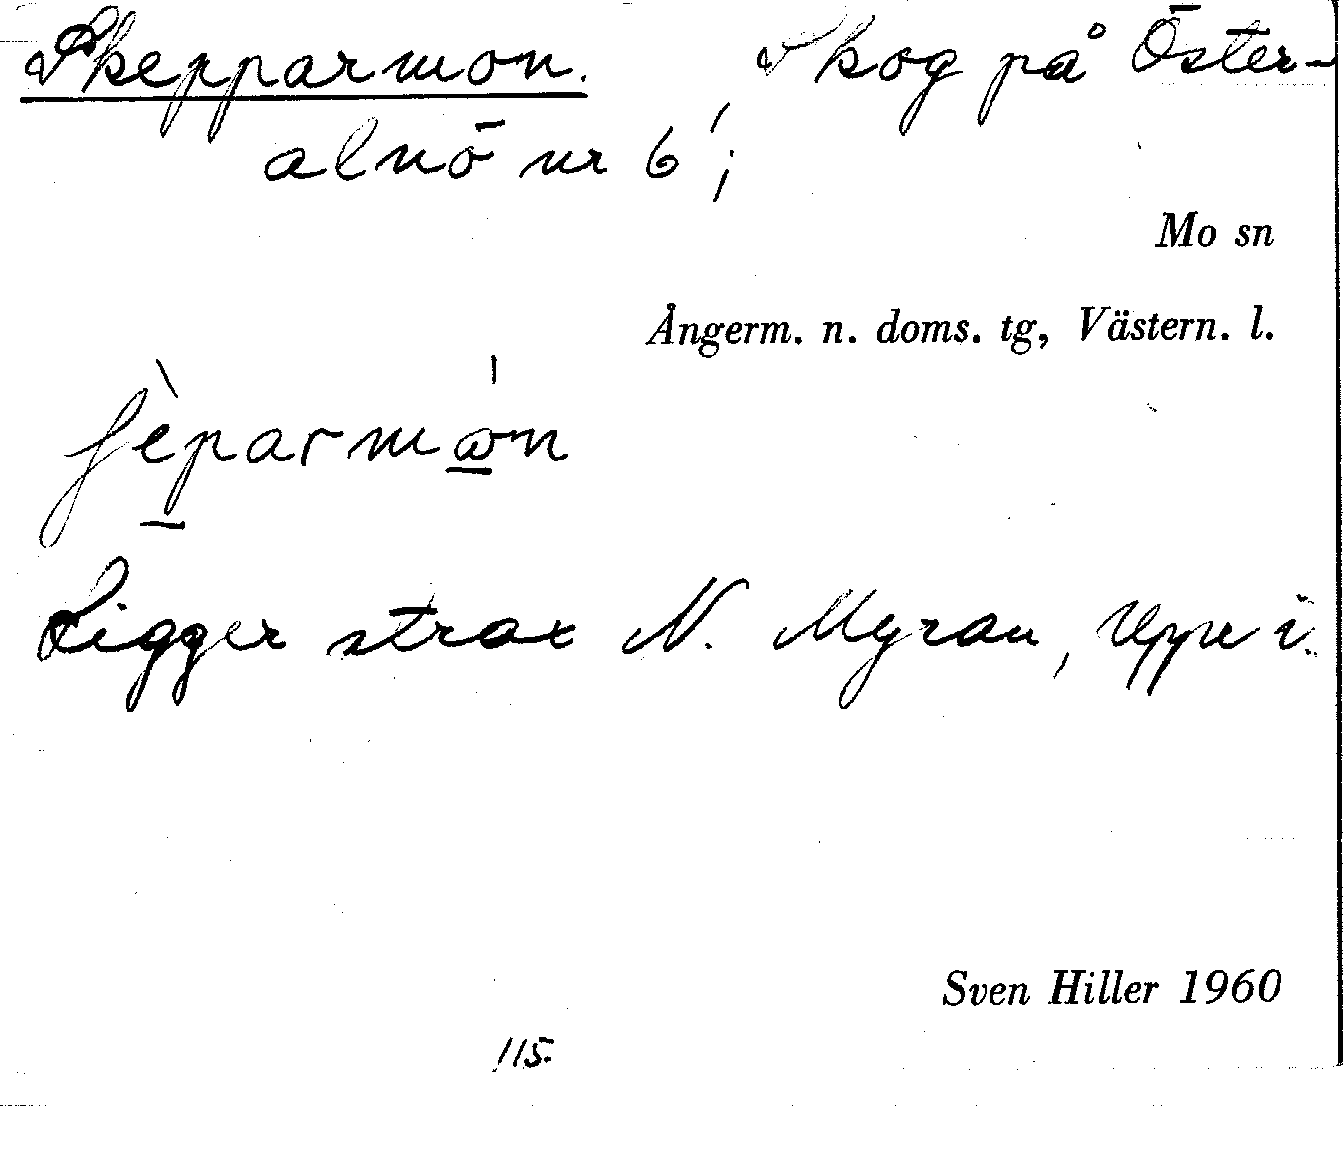 Skepparmon. Skog på Öster-
alnö nr 6';
Mo sn
Ångerm. n. doms. tg, Västern. l.
Ligger strax N. Myran, Uppe i.
Sven Hiller 1960
115.